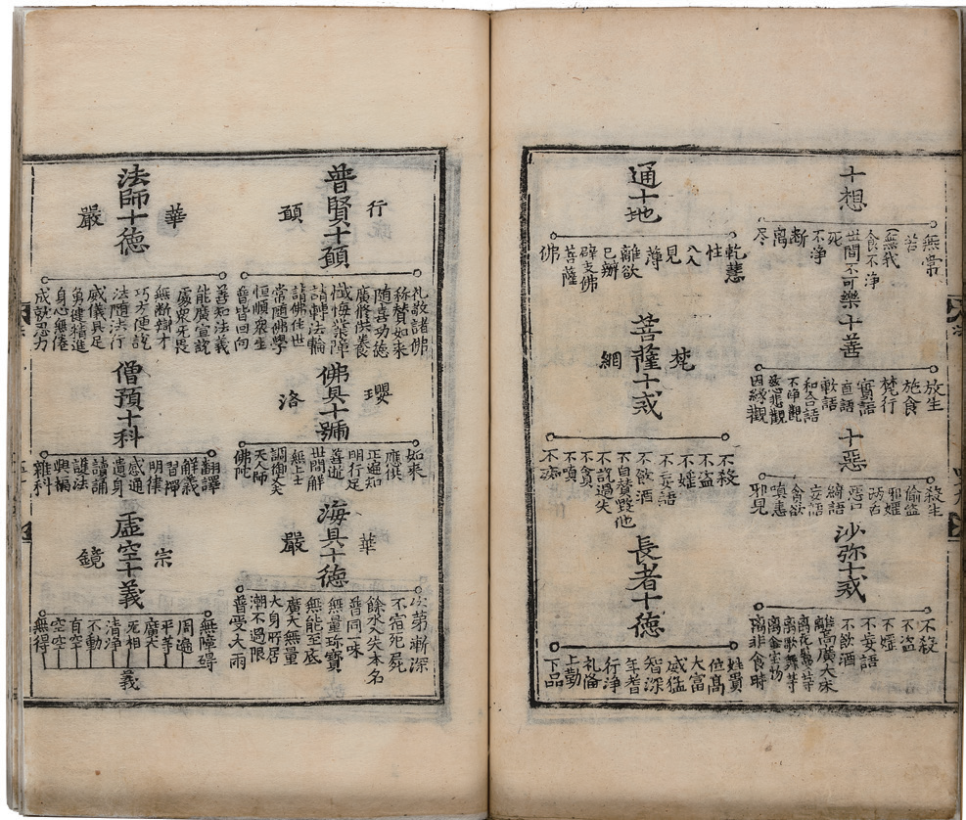 十想
無常
苦
無我
食不净
世間不可樂
死
不净
断
离
尽
十善
放生
施食
梵行
實語
直語
軟語
和合語
不净觀
慈悲觀
因緣觀
十惡
殺生
偷盗
邪婬
两舌
惡口
綺語
妄語
貪欲
嗔恚
邪見
沙弥十戒
不殺
不盗
不婬
不妄語
不飲酒
離高廣大床
离花鬘等
离歌舞等
离金宝物
离非食時
通十地
乾慧
性
八人
見
薄
離欲
已辦
辟支佛
菩薩
佛
菩薩十戒
梵
網
不殺
不盗
不婬
不妄語
不飲酒
不自賛毀他
不說過失
不貪
不嗔
不痴
長者十德
姓貴
位高
大富
威猛
智深
年耆
行浄
礼俻
上勤
下品
普賢十願
行
願
礼敬諸佛
称賛如来
廣修供養
懺悔業障
随喜功徳
請轉法輪
請佛住世
常随佛學
恒順衆生
普皆回向
佛具十號
瓔
洛
如来
應供
正遍知
明行足
善逝
世間解
無上士
調御丈夫
天人師
佛陀
海具十德
華
嚴
次第漸深
不宿死屍
餘水入失本名
普同一味
無量珎寶
無能至底
廣大無量
大身所居
潮不過限
普受大雨
法師十德
華
嚴
善知法義
能廣宣說
處衆无畏
無断辯才
巧方便說
法随法行
威儀具足
勇健精進
身心無倦
成就忍力
僧預十科
翻譯
解義
習禪
明律
感通
遺身
讀誦
護法
興福
雜科
虛空十義
宗
鏡
無障碍
周遍
平等
廣大
無相
清浄
不動
有空
空空
無得
義